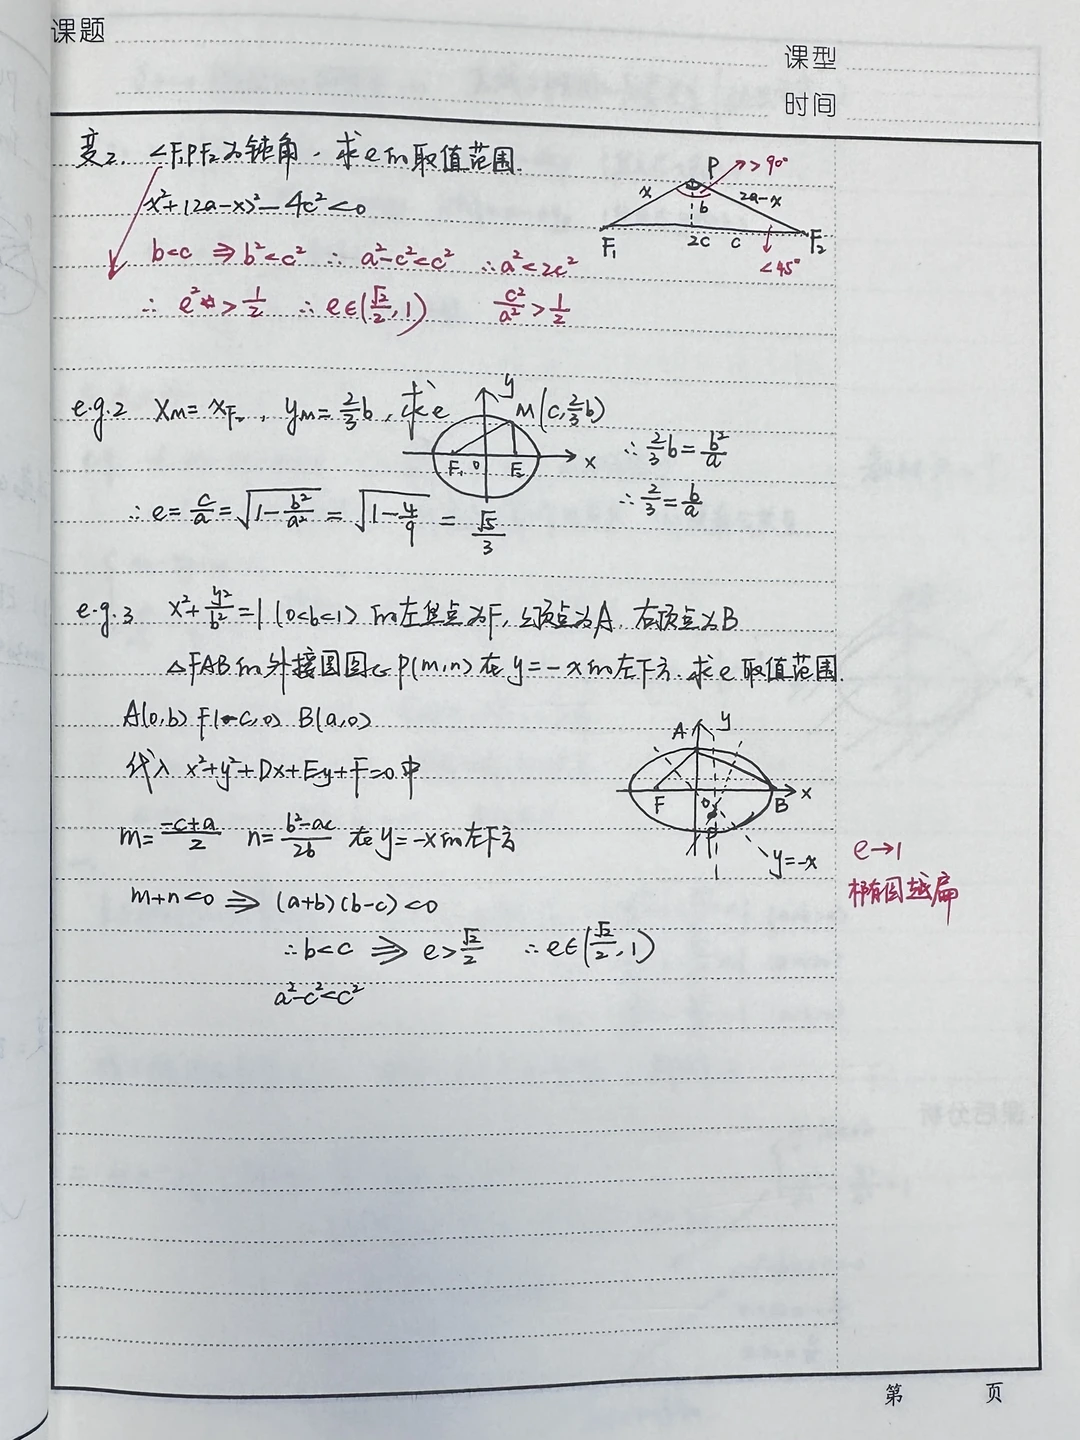 课题
课型
时间
变2. ∠F₁PF₂为钝角，求e的取值范围.
x²+(2a-x)²-4c²<0
b<c ⇒ b²<c² ∴ a²-c²<c² ∴a²<2c²
∴ e²>1/2 ∴ e∈(√2/2, 1) c²/a²>1/2
P >90°
x b 2a-x
F₁ 2c c F₂
<45°
e.g.2 x_M=x_F₂, y_M=2/3b, 求e
y M(c, 2/3b)
F₁ 0 F₂ x
∴ 2/3b=b²/a
∴ 2/3=b/a
∴ e=c/a=√(1-b²/a²)=√(1-4/9)=√5/3
e.g.3 x²+y²/b²=1 (0<b<1) 的左焦点为F, 上顶点为A, 右顶点为B
△FAB的外接圆圆心P(m,n)在y=-x的左下方.求e取值范围.
A(0,b) F(-c,0) B(a,0)
代入 x²+y²+Dx+Ey+F=0中
m=(-c+a)/2 n=(b²-ac)/2b 在y=-x的左下方
A y
F 0 B x
P
y=-x
m+n<0 ⇒ (a+b)(b-c)<0
∴b<c ⇒ e>√2/2 ∴e∈(√2/2, 1)
a²-c²<c²
e→1
椭圆越扁
第 页